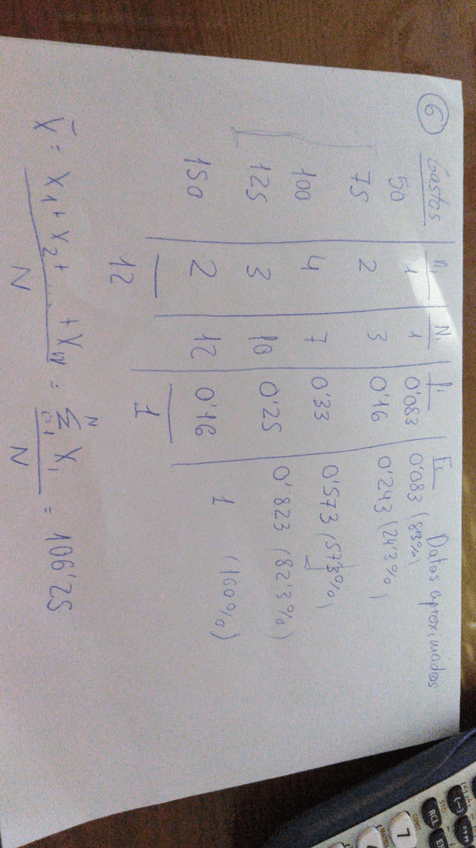 6
Gastos ni Ni fi Fi Datos aproximados
50 1 1 0'083 0'083 (8'3%)
75 2 3 0'16 0'243 (24'3%)
100 4 7 0'33 0'573 (57'3%)
125 3 10 0'25 0'823 (82'3%)
150 2 12 0'16 1 (100%)
12 1
X̄ = X1 + X2 + ... + XN / N = N Σ i=1 Xi / N = 106'25
7
RCL
(-)